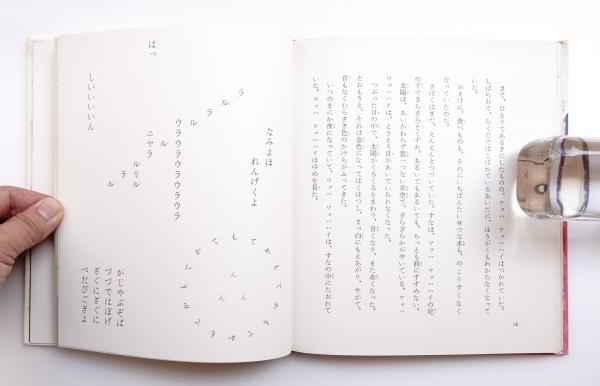 さて、ひとりであるきだしたものの、ワッハ　ワッハハイはつかれていた。
しばられて、らくだではこばれているあいだに、ほうがくもわからなくなって
いた。
おまけに、食べものも、それにいちばんたいせつな水も、のこりすくなく
なっていたのだ。
さばくはまだ、えんえんとつづいていた。すなは、ワッハ　ワッハハイの足
の下でさらさらとくずれ、あるいてもあるいても、ちっとも前にすすめない。
太陽は、あいかわらず雲一つない青空で、ぎらぎらかがやいている。ワッハ
ワッハハイは、とうとう目があいていられなくなった。
つぶった目の中で、太陽がくるくるとまわり、青くなり、また赤くなった。
とおもうと、それは金色になってばくはつし、まっ白にもえあがり、やがて、
音もなくむらさき色のかけらがふってきた。
いつのまにか夜になっていて、ワッハ　ワッハハイは、すなの中にたおれて
いた。ワッハ　ワッハハイはゆめを見た。
なみよほ
れんげくよ
ラ
ル
ラ
ル
ウラウラウラウラウラ
ル
ニャラ
ルリル
ラ
ル
ぱっ
しいいいいいん
がじゃぶぞば
づづではぼげ
ざぐにざぐに
べだびごぎよ